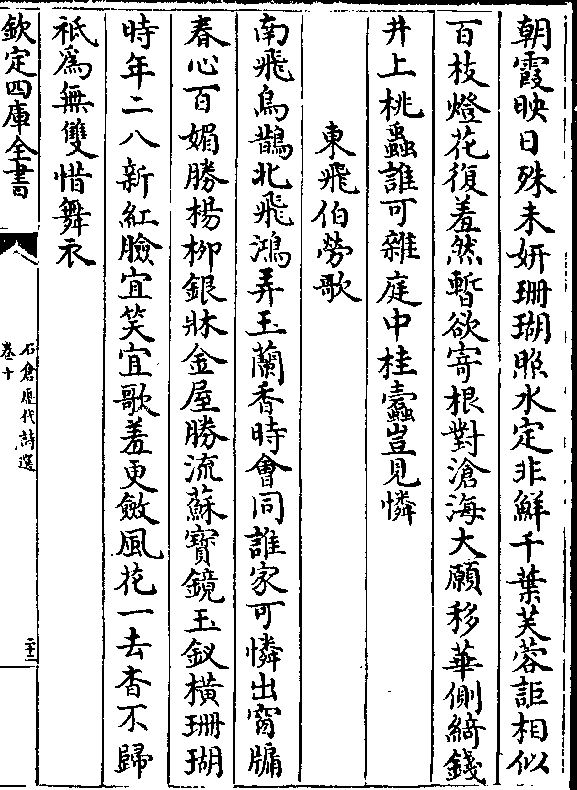 朝霞映日殊未妍珊瑚照水定非鮮千葉芙蓉詎相似
百枝燈花復羞然暫欲寄根對滄海大願移華側綺錢
井上桃蟲誰可雜庭中桂蠹豈見憐
東飛伯勞歌
南飛烏鵲北飛鴻弄玉蘭香時會同誰家可憐出窗牖
春心百媚勝楊柳銀牀金屋勝流蘇寶鏡玉釵橫珊瑚
時年二八新紅臉宜笑宜歌羞更斂風花一去杳不歸
祇為無雙惜舞衣
欽定四庫全書
石倉歷代詩選
卷十
二十三